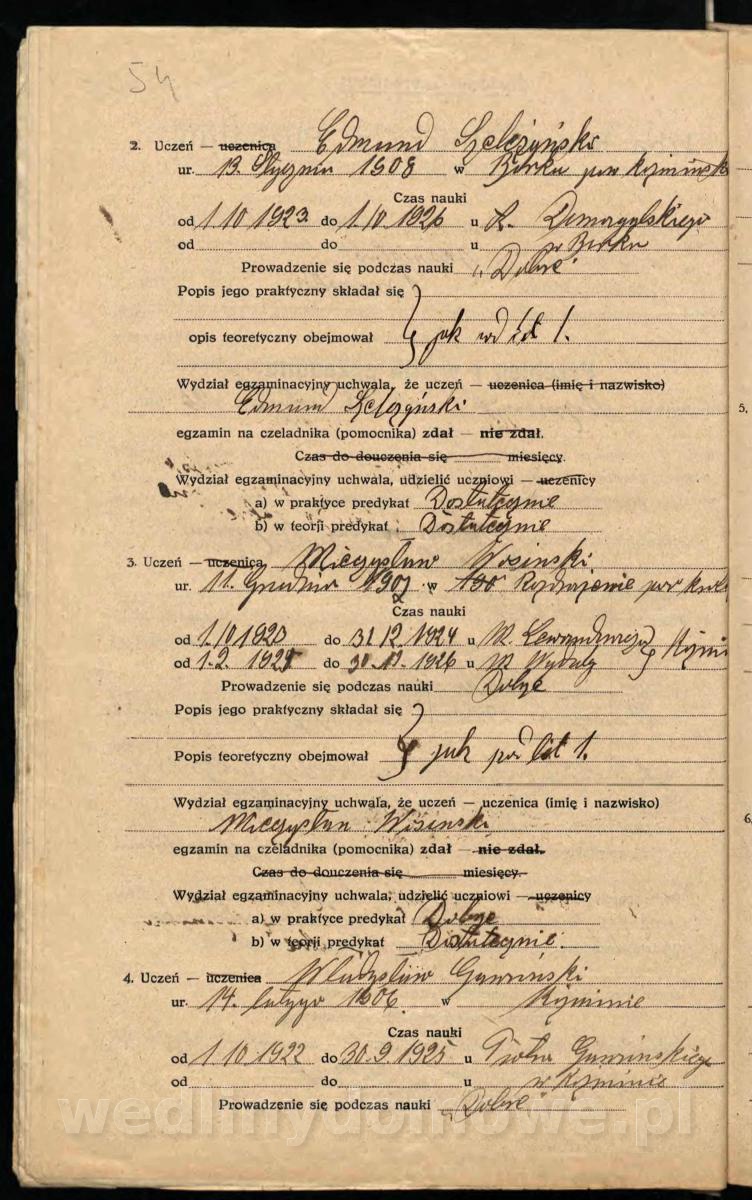 54
2. Uczeń — uczenica Edmund Szelczyński
ur. 13. Stycznia 1908 w Borku pow. Koźmiński
Czas nauki
od 1.10 1923. do 1.10.1926 u
od do u w Borku
Prowadzenie się podczas nauki „Dobre"
Popis jego praktyczny składał się
opis teoretyczny obejmował } jak pod lit 1.
Wydział egzaminacyjny uchwala, że uczeń — uczenica (imię i nazwisko)
Edmund Szelczyński
egzamin na czeladnika (pomocnika) zdał — nie zdał.
Czas do douczenia się miesięcy.
Wydział egzaminacyjny uchwala, udzielić uczniowi — uczenicy
a) w praktyce predykat Dostatecznie
b) w teorji predykat Dostatecznie
3. Uczeń — uczenica Mieczysław Wosinski
ur. 11. Grudnia w pow
Czas nauki
od 1.10 1920 do 31.12.1924 u
od 1.2. do 1926 u
Prowadzenie się podczas nauki Dobre
Popis jego praktyczny składał się
Popis teoretyczny obejmował } jak pod lit 1.
Wydział egzaminacyjny uchwala, że uczeń — uczenica (imię i nazwisko)
Mieczysław Wosinski
egzamin na czeladnika (pomocnika) zdał — nie zdał.
Czas do douczenia się miesięcy.
Wydział egzaminacyjny uchwala, udzielić uczniowi — uczenicy
a) w praktyce predykat Dobrze
b) w teorji predykat Dostatecznie.
4. Uczeń — uczenica Władysław Gawroński
ur. 14. lutego 1906. w Koźminie
Czas nauki
od 1.10.1922 do 30.9.1925 u Piotra Gawrońskiego
od do u w Koźminie
Prowadzenie się podczas nauki „Dobre"
wedlinydomowe.pl
5.
6.